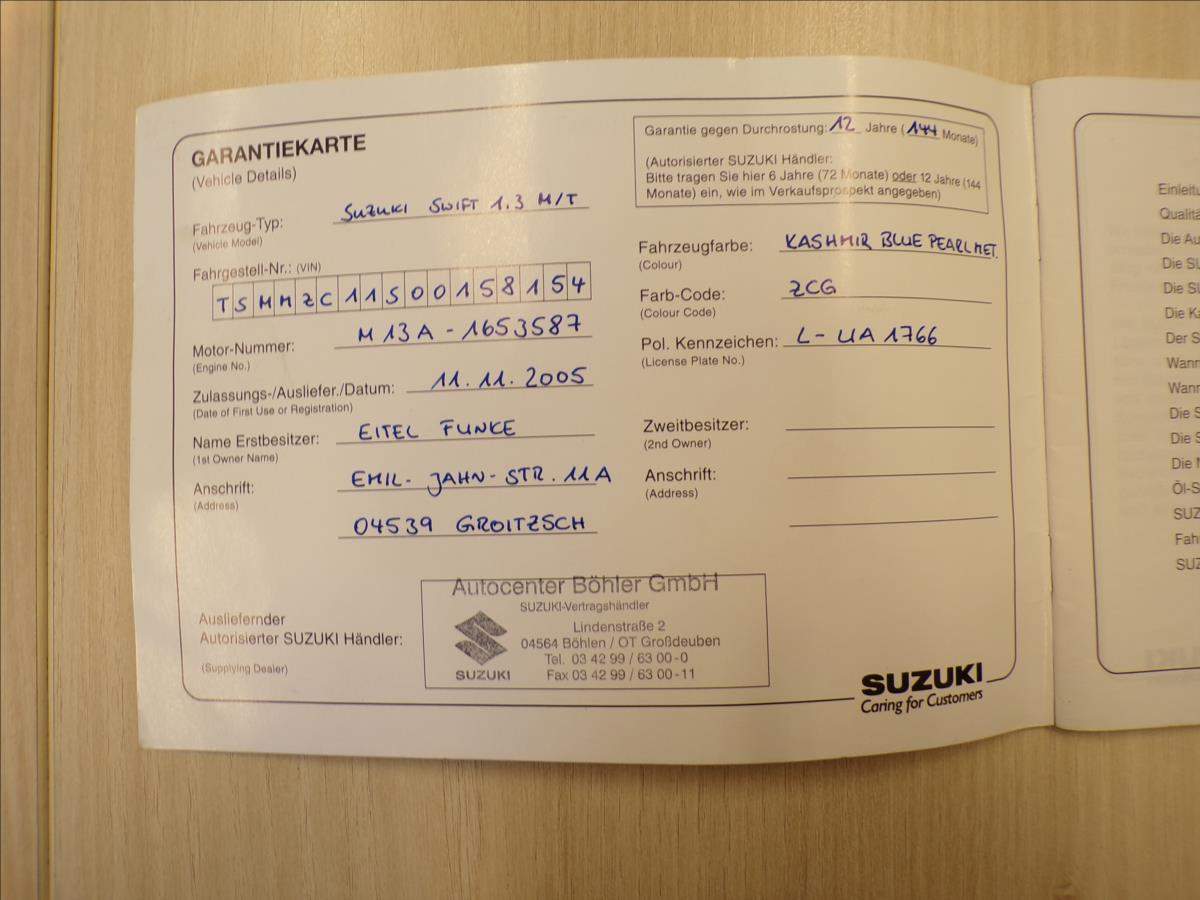 GARANTIEKARTE
(Vehicle Details)
Fahrzeug-Typ: SUZUKI SWIFT 1.3 M/T
(Vehicle Model)
Fahrgestell-Nr.: (VIN)
TSMMZC11S00158154
Motor-Nummer: M13A-1653587
(Engine No.)
Zulassungs-/Ausliefer./Datum: 11.11.2005
(Date of First Use or Registration)
Name Erstbesitzer: EITEL FUNKE
(1st Owner Name)
Anschrift: EMIL-JAHN-STR. 11A
(Address)
04539 GROITZSCH
Garantie gegen Durchrostung: 12 Jahre (144 Monate)
(Autorisierter SUZUKI Händler:
Bitte tragen Sie hier 6 Jahre (72 Monate) oder 12 Jahre (144
Monate) ein, wie im Verkaufsprospekt angegeben)
Fahrzeugfarbe: KASHMIR BLUE PEARL MET.
(Colour)
Farb-Code: ZCG
(Colour Code)
Pol. Kennzeichen: L-UA 1766
(License Plate No.)
Zweitbesitzer:
(2nd Owner)
Anschrift:
(Address)
Ausliefernder
Autorisierter SUZUKI Händler:
(Supplying Dealer)
Autocenter Böhler GmbH
SUZUKI-Vertragshändler
Lindenstraße 2
04564 Böhlen / OT Großdeuben
Tel. 03 42 99 / 63 00-0
Fax 03 42 99 / 63 00-11
SUZUKI
SUZUKI
Caring for Customers
Einleitu
Qualitä
Die Au
Die SU
Die SU
Die Ka
Der S
Wann
Wann
Die S
Die S
Die N
Öl-S
SUZ
Fah
SUZ